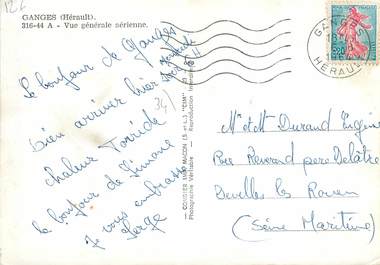 126
GANGES (Hérault).
316-44 A - Vue générale aérienne.
Le bonjour de Ganges
bien arriver hier
chaleur Torride
le bonjour de Simone
je vous embrasse
Serge
34
COMBIER IMP. MACON (S.-et-L.) "CIM"
Photographie Véritable - Reproduction Interdite
GANGES
HERAULT
0,20
M et M Durand Eugène
Rue Reverend pere Delâtre
Deville les Rouen
(Seine Maritime)